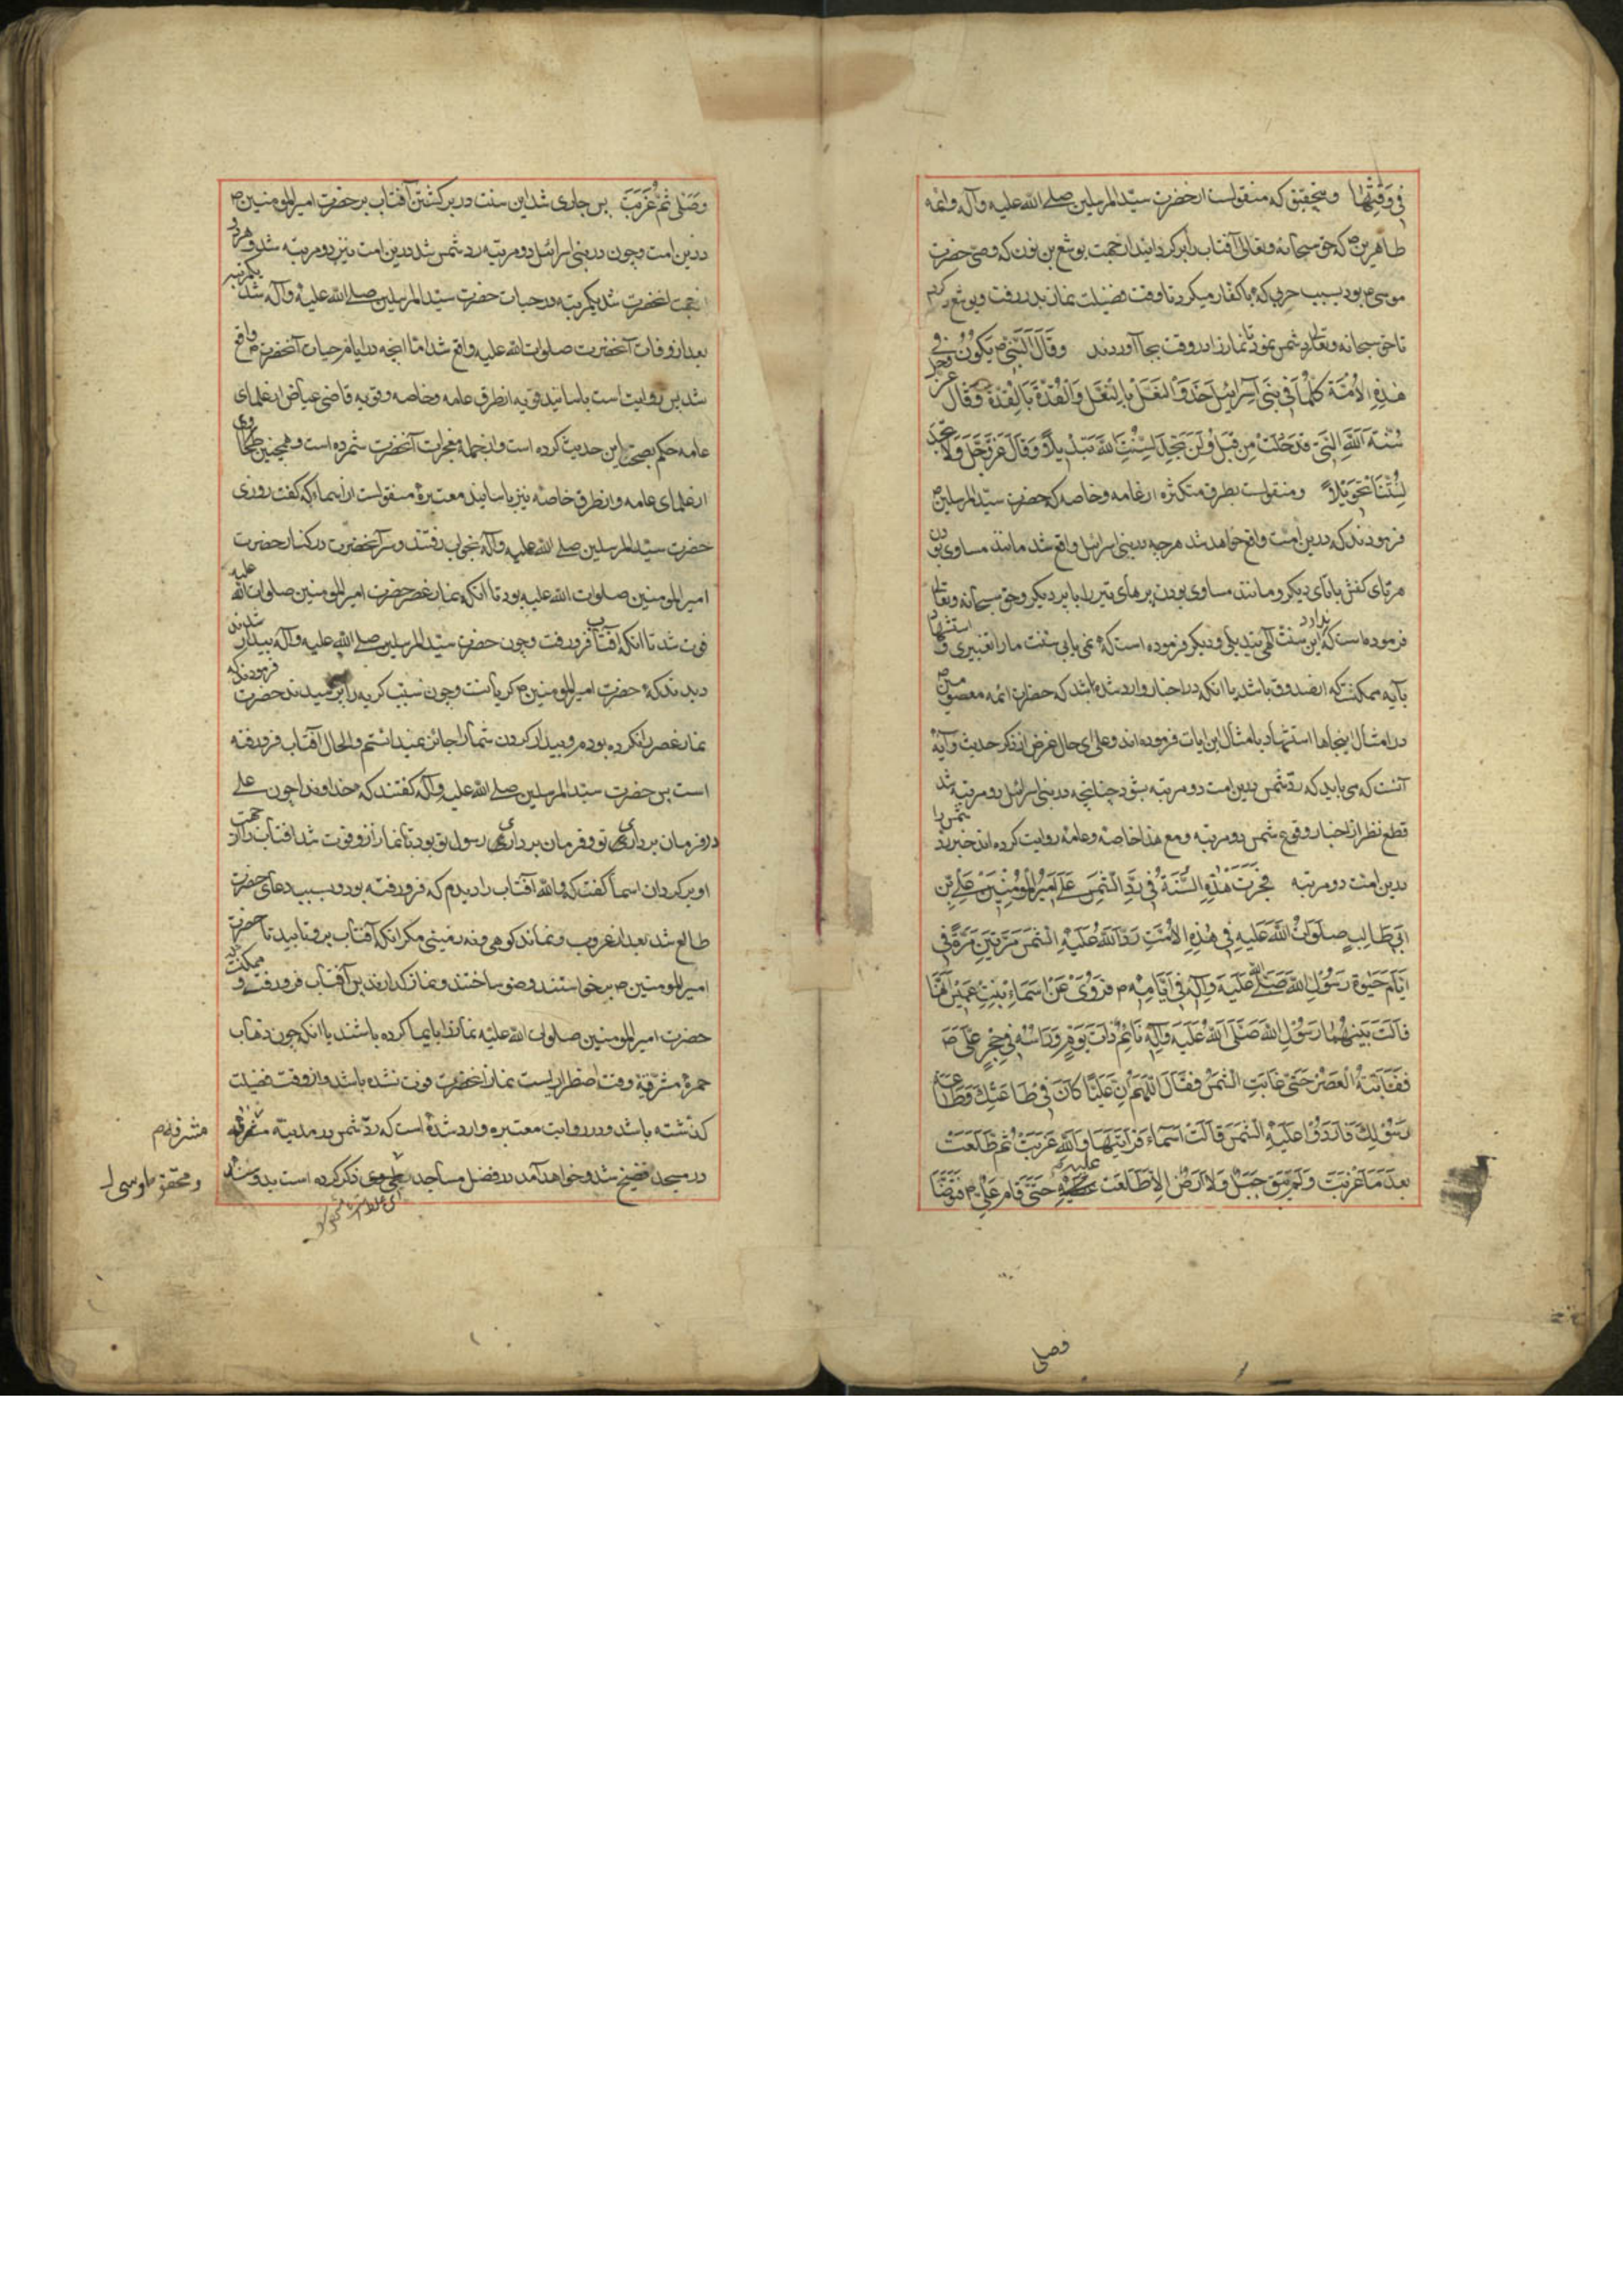 فِی وَقْتِهَا و بتحقیق که منقولست از حضرت سیّد المرسلین صلی الله علیه وآله و ائمه
طاهرین ص که حق سبحانه و تعالی آفتاب را برکردانید از جهت یوشع بن نون که وصی حضرت
موسی ع بود بسبب حربی که با کفار میکرد تا وقت فضیلت نماز بدر رفت و یوشع
تا حق سبحانه و تعالی رد شمس نمود تا نماز را در وقت بجا آوردند وَقَالَ النَّبِیُّ ص یَکُونُ فِی
هٰذِهِ الاُمَّةِ کُلَّمَا فِی بَنِی اِسْرَائِیلَ حَذْوَ النَّعْلِ بِالنَّعْلِ وَالْقُذَّةِ بِالْقُذَّةِ وَقَالَ عَزَّ وَجَلَّ
سُنَّةَ اللهِ الَّتِی قَدْ خَلَتْ مِنْ قَبْلُ وَلَنْ تَجِدَ لِسُنَّتِ اللهِ تَبْدِیلاً وَقَالَ عَزَّ وَجَلَّ وَلا تَجِدُ
لِسُنَّتِنَا تَحْوِیلاً و منقولست بطرق متکثره از عامه و خاصه که حضرت سیّد المرسلین ص
فرمودند که درین امت واقع خواهد شد هرچه در بنی اسرائیل واقع شد مانند مساوی بودن
هر تای کفش با تای دیکر و مانند مساوی بودن پرهای تیر با پر دیکر و حق سبحانه و تعالی
فرموده است که این سنت الهی تبدیلی ندارد و دیکر فرموده است که نمی یابی سنت ما را تغییری و استشهاد
بآیه ممکنست که از صدوق باشد یا انکه در اخبار وارد شده باشد که حضرات ائمه معصومین ص
در امثال اینجاها استشهاد بامثال این ایات فرموده اند و علی ای حال غرض از ذکر حدیث و آیه
آنست که می باید که رد شمس درین امت دو مرتبه بشود چنانچه در بنی اسرائیل دو مرتبه شد
قطع نظر از اخبار وقوع شمس دو مرتبه و مع هذا خاصه و عامه روایت کرده اند خبر رد شمس را
درین امت دو مرتبه فَجَرَتْ هٰذِهِ السُّنَّةُ فِی رَدِّ الشَّمْسِ عَلَی اَمِیرِ الْمُؤْمِنِینَ عَلِیِّ بْنِ
اَبِی طَالِبٍ صَلَوَاتُ اللهِ عَلَیْهِ فِی هٰذِهِ الاُمَّةِ رَدَّ اللهُ عَلَیْهِ الشَّمْسَ مَرَّتَیْنِ مَرَّةً فِی
اَیَّامِ حَیٰوةِ رَسُولِ اللهِ صَلَّی اللهُ عَلَیْهِ وَآلِهِ فَرُوِیَ عَنْ اَسْمَاءَ بِنْتِ عُمَیْسٍ اَنَّهَا
قَالَتْ بَیْنَمَا رَسُولُ اللهِ صَلَّی اللهُ عَلَیْهِ وَآلِهِ نَائِمٌ ذَاتَ یَوْمٍ وَرَأْسُهُ فِی حِجْرِ عَلِیٍّ ص
فَفَاتَتْهُ الْعَصْرُ حَتَّی غَابَتِ الشَّمْسُ فَقَالَ اَللّهُمَّ اِنَّ عَلِیّاً کَانَ فِی طَاعَتِکَ وَطَاعَةِ
رَسُولِکَ فَارْدُدْ عَلَیْهِ الشَّمْسَ قَالَتْ اَسْمَاءُ فَرَاَیْتُهَا وَاللهِ غَرَبَتْ ثُمَّ طَلَعَتْ
بَعْدَ مَا غَرَبَتْ وَلَمْ یَبْقَ جَبَلٌ وَلا اَرْضٌ اِلاّ طَلَعَتْ عَلَیْهِ حَتَّی قَامَ عَلِیٌّ م فَتَوَضَّأَ
وَصَلَّی ثُمَّ غَرَبَتْ پس جاری شد این سنت در برکشتن آفتاب بر حضرت امیر المومنین ص
درین امت و چون در بنی اسرائیل دو مرتبه رد شمس شد درین امت نیز دو مرتبه شد و هر دو
از جهت انحضرت شد یکمرتبه در حیات حضرت سیّد المرسلین صلی الله علیه وآله شد یکمرتبه
بعد از وفات آنحضرت صلوات الله علیه واقع شد اما انچه در ایام حیات آنحضرت ص واقع
شد پس روایت است باسانید قویه از طرق عامه و خاصه و قاضی عیاض از علمای
عامه حکم بصحت این حدیث کرده است و از جمله معجزات آنحضرت شمرده است و همچنین طحاوی
از علمای عامه و از طرق خاصه نیز باسانید معتبره منقولست از اسماء که کفت روزی
حضرت سیّد المرسلین صلی الله علیه وآله بخواب رفتند و سر آنحضرت در کنار حضرت
امیر المومنین صلوات الله علیه بود تا آنکه نماز عصر حضرت امیر المومنین صلوات الله علیه
فوت شد تا انکه آفتاب فرو رفت و چون حضرت سیّد المرسلین صلی الله علیه وآله بیدار شدند
دیدند که حضرت امیر المومنین م کریانست و چون سبب کریه را پرسیدند حضرت فرمودند که
نماز عصر را نکرده بودم و بیدار کردن شما را جائز نمیدانستم و الحال آفتاب فرو رفته
است پس حضرت سیّد المرسلین صلی الله علیه وآله کفتند که خداوندا چون علی
در فرمان برداری تو و فرمان برداری رسول تو بود تا نماز ازو فوت شد آفتاب را از جهت
او برکردان اسماء کفت که والله آفتاب را دیدم که فرو رفته بود و بسبب دعای حضرت
طالع شد بعد از غروب و نماند کوهی و نه زمینی مکر انکه آفتاب برو تابید تا حضرت
امیر المومنین ص برخواستند و وضو ساختند و نماز کذاردند پس آفتاب فرو رفت و ممکنست که
حضرت امیر المومنین صلوات الله علیه نماز را بایما کرده باشند یا انکه چون ذهاب
حمرهٔ مشرقیة وقت اضطراریست نماز انحضرت فوت نشده باشد و از وقت فضیلت
کذشته باشد و در روایت معتبره وارد شده است که رد شمس در مدینه مشرفه
مشرفه م
در مسجد فضیخ شد و خواهد آمد در فضل مساجد ذکر کرده است
فصلی